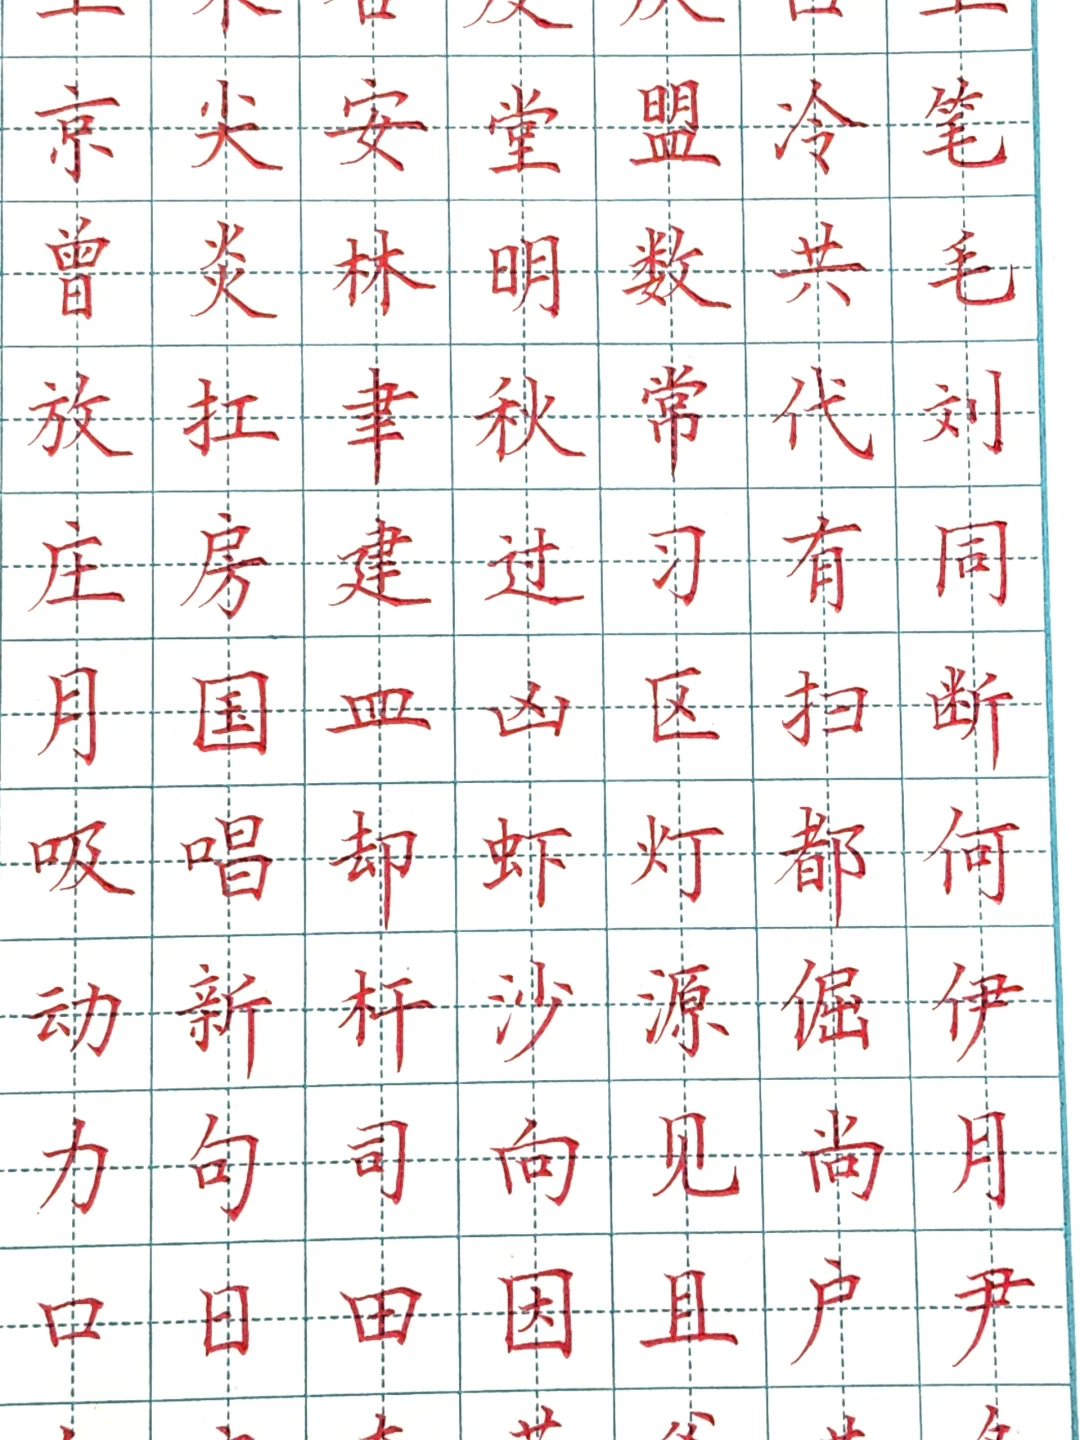 京尖安堂盟冷笔
曾炎林明数共毛
放扛聿秋常代刘
庄房建过习有同
月国皿凶区扫断
吸唱却虾灯都何
动新杆沙源倔伊
力句司向见尚月
口日田因且户尹